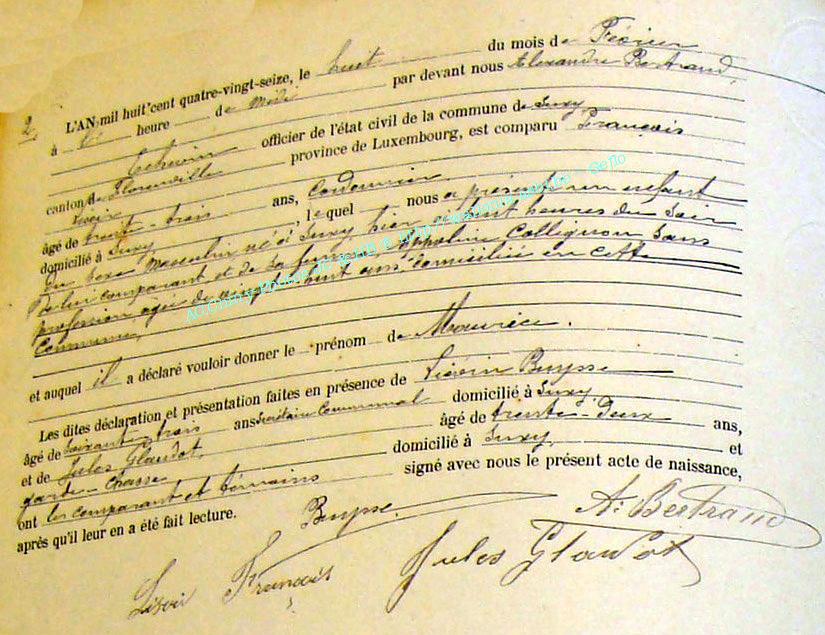 2.
L'AN mil huit cent quatre-vingt-seize, le huit du mois de Février
à heure de midi par devant nous Alexandre Bertrand,
Echevin officier de l'état civil de la commune de Suxy
canton de Florenville province de Luxembourg, est comparu François
Lizoir
âgé de trente-trois ans, Cordonnier
domicilié à Suxy, lequel nous a présenté un enfant
du sexe masculin né à Suxy hier à huit heures du soir
de lui comparant et de sa femme, Appoline Collignon sans
profession agée de vingt huit ans domiciliée en cette
Commune,
et auquel il a déclaré vouloir donner le prénom de Maurice.
Les dites déclaration et présentation faites en présence de Liévin Buysse
âgé de soixante-trois ans Secrétaire Communal domicilié à Suxy,
et de Jules Glaudot, âgé de trente-deux ans,
garde-chasse domicilié à Suxy, et
ont les comparant et témoins signé avec nous le présent acte de naissance,
après qu'il leur en a été fait lecture.
Buysse. A. Bertrand
Lizoir François Jules Glaudot